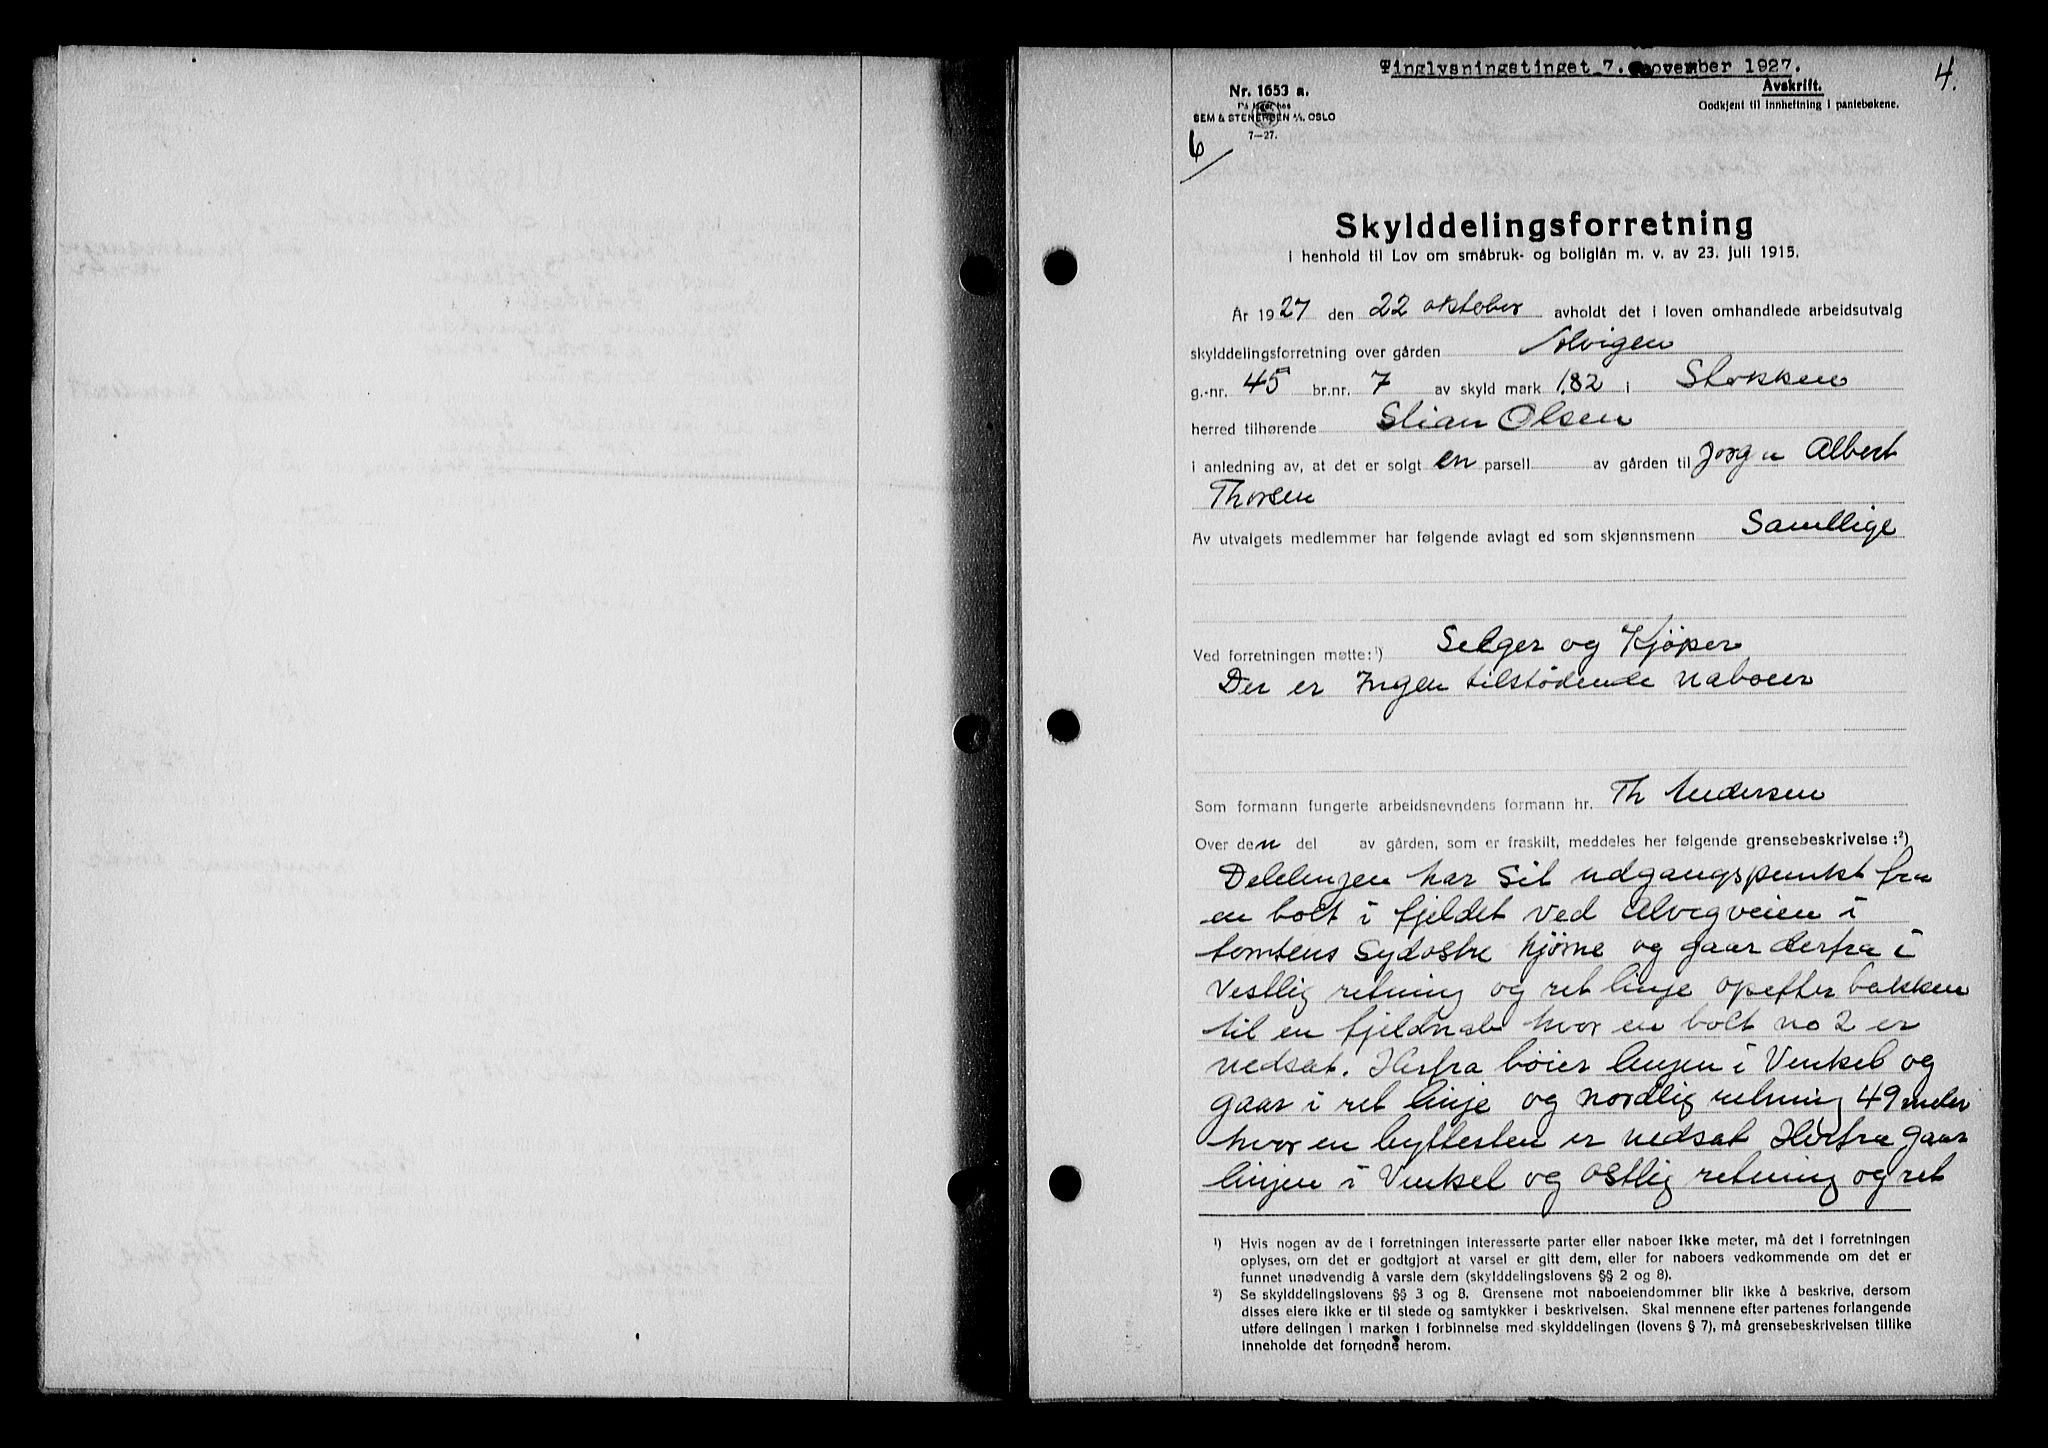 Tinglysningstinget 7. november 1927.
4.
Nr. 1653 a.
Avskrift.
På lager hos
Godkjent til innheftning i pantebøkene.
SEM & STENERSEN A/S. OSLO
7—27.
6
Skylddelingsforretning
i henhold til Lov om småbruk- og boliglån m. v. av 23. juli 1915.
År 1927 den 22 oktober avholdt det i loven omhandlede arbeidsutvalg
skylddelingsforretning over gården Alvigen
g.-nr. 45 br.nr. 7 av skyld mark 1.82 i Stokken
herred tilhørende Stian Olsen
i anledning av, at det er solgt en parsell av gården til Jørgen Albert
Thorsen
Av utvalgets medlemmer har følgende avlagt ed som skjønnsmenn Samtlige
Ved forretningen møtte:¹) Selger og Kjøper
Der er Ingen tilstødende naboer
Som formann fungerte arbeidsnevndens formann hr. Th Andersen
Over den del av gården, som er fraskilt, meddeles her følgende grensebeskrivelse:²)
Delelinjen har sit udgangspunkt fra
en bolt i fjeldet ved Alvigveien i
tomtens Sydøstre hjørne og gaar derfra i
Vestlig retning og ret linje opefter bakken
til en fjeldnab hvor en bolt no 2 er
nedsat. Herfra bøier linjen i Vinkel og
gaar i ret linje og nordlig retning 49 meter
hvor en byttesten er nedsat Herfra gaar
linjen i Vinkel og Østlig retning og ret
¹) Hvis nogen av de i forretningen interesserte parter eller naboer ikke møter, må det i forretningen
oplyses, om det er godtgjort at varsel er gitt dem, eller for naboers vedkommende om det er
funnet unødvendig å varsle dem (skylddelingslovens §§ 2 og 8).
²) Se skylddelingslovens §§ 3 og 8. Grensene mot naboeiendommer blir ikke å beskrive, dersom
disses eiere ikke er til stede og samtykker i beskrivelsen. Skal mennene efter partenes forlangende
utføre delingen i marken i forbinnelse med skylddelingen (lovens § 7), må grensebeskrivelsen tillike
inneholde det fornødne herom.